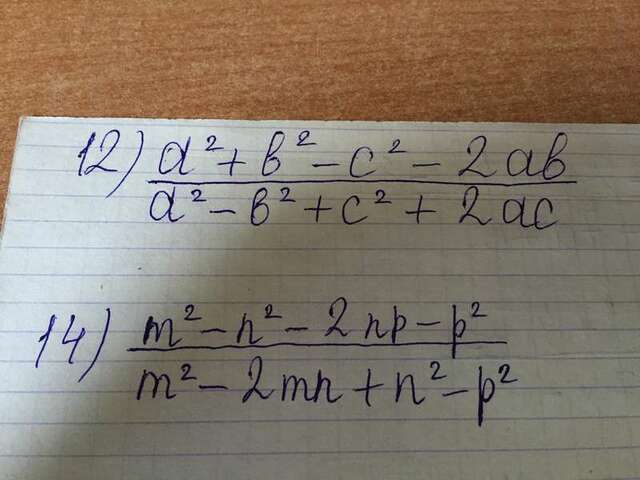 12) a² + в² − c² − 2ав
a² − в² + c² + 2ac
14) m² − n² − 2np − p²
m² − 2mn + n² − p²